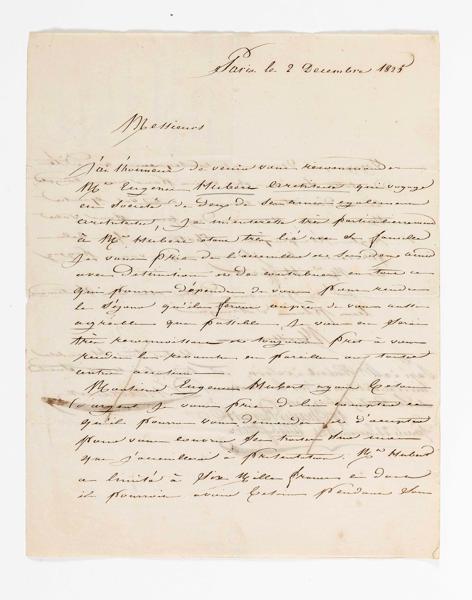 Paris le 2 Decembre 1825
Messieurs
J'ai l'honneur de venir vous recommander
Mr. Eugene Hubert Architecte qui voyage
en Société de deux de ses amis également
architectes, Je m'interesse très particulierement
à Mr. Hubert étant très lié avec sa famille
Je vous prie de l'accueillir
avec distinction et de contribuer en tout ce
qui pourra dépendre de vous pour rendre
le Séjour qu'il fera auprès de vous aussi
agréable que possible. Je vous en serai
très reconnaissant et toujours prêt à vous
rendre la revanche en pareille ou toute
autre occasion.
Monsieur Eugene Hubert ayant besoin
d'argent Je vous prie de lui compter ce
qu'il pourra vous demander et d'accepter
pour vous couvrir ses traites sur moi
que j'accueillerai à présentation. Mr. Hubert
a limité à Six Mille francs ce dont
il pourrait avoir besoin pendant son